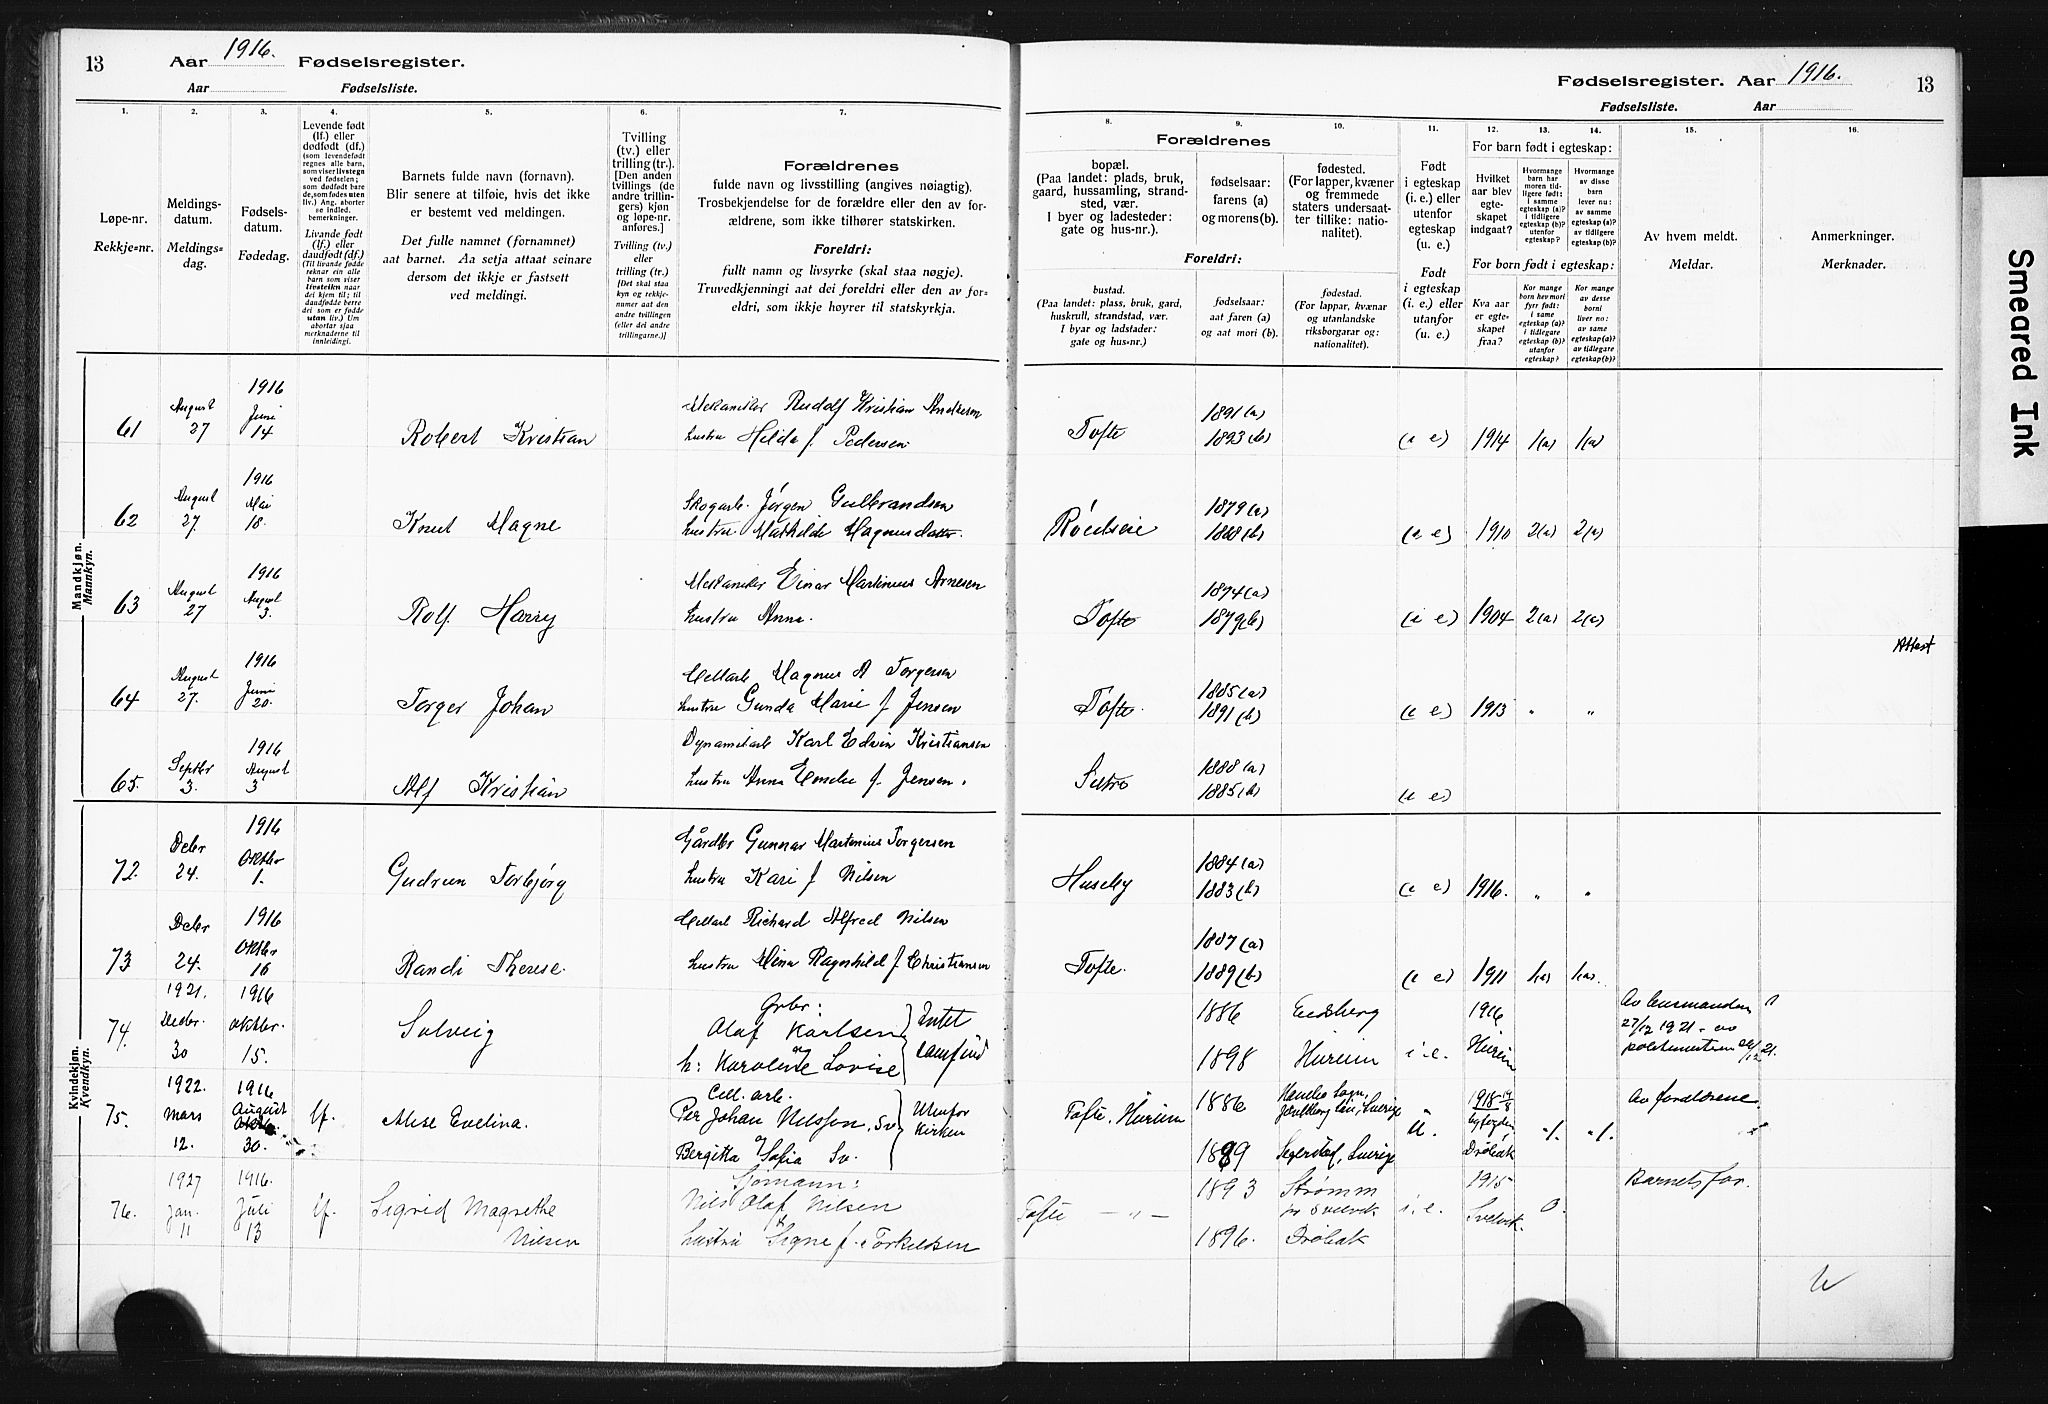 13
Aar 1916. Fødselsregister.
Aar Fødselsliste.
Fødselsregister. Aar 1916.
Fødselsliste. Aar
13
Smeared Ink
1.
Løpe-nr.
Rekkje-nr.
2.
Meldings-
datum.
Meldings-
dag.
3.
Fødsels-
datum.
Fødedag.
4.
Levende født
(lf.) eller
dødfødt (df.)
(som levendefødt
regnes alle barn,
som viser livstegn
ved fødselen;
som dødfødt bare
de, som fødes uten
liv.) Ang. aborter
se indled.
bemerkninger.
Livande født
(lf.) eller
daudfødt (df.)
(Til livande fødde
reknar ein alle
barn som viser
livsteikn naar
dei kjem til; til
daudfødde berre
dei som er fødde
utan liv.) Um
abortar sjaa
merknaderne til
innleidingi.
5.
Barnets fulde navn (fornavn).
Blir senere at tilføie, hvis det ikke
er bestemt ved meldingen.
Det fulle namnet (fornamnet)
aat barnet. Aa setja attaat seinare
dersom det ikkje er fastsett
ved meldingi.
6.
Tvilling
(tv.) eller
trilling (tr.).
[Den anden
tvillings (de
andre trillin-
gers) kjøn
og løpe-nr.
anføres.]
Tvilling (tv.)
eller
trilling (tr.)
[Det skal staa
kyn og rekkje-
numer aat den
andre tvillingen
(eller dei andre
trillingarne.)]
7.
Forældrenes
fulde navn og livsstilling (angives nøiagtig).
Trosbekjendelse for de forældre eller den av for-
ældrene, som ikke tilhører statskirken.
Foreldri:
fullt namn og livsyrke (skal staa nøgje).
Truvedkjenningi aat dei foreldri eller den av for-
eldri, som ikkje høyrer til statskyrkja.
8.
9.
10.
Forældrenes
bopæl.
(Paa landet: plads, bruk,
gaard, hussamling, strand-
sted, vær.
I byer og ladesteder:
gate og hus-nr.).
fødselsaar:
farens (a)
og morens (b).
fødested.
(For lapper, kvæner
og fremmede
staters undersaat-
ter tillike: natio-
nalitet).
Foreldri:
bustad.
(Paa landet: plass, bruk, gard,
huskrull, strandstad, vær.
I byar og ladstader:
gate og hus-nr.)
fødselsaar:
aat faren (a)
og aat mori (b).
fødestad.
(For lappar, kvænar
og utanlandske
riksborgarar og:
nationalitet).
11.
Født
i egteskap
(i. e.) eller
utenfor
egteskap
(u. e.)
Født
i egteskap
(i. e.) eller
utanfor
egteskap
(u. e.)
12.
13.
14.
For barn født i egteskap:
Hvilket
aar blev
egte-
skapet
indgaat?
Hvormange
barn har
moren tid-
ligere født:
i samme
egteskap (a)?
i tidligere
egteskap (b)?
utenfor
egteskap?
Hvormange
av disse
barn
lever nu:
av samme
egteskap (a)?
av tidligere
egteskap (b)?
For born født i egteskap:
Kva aar
er egte-
skapet
fraa?
Kor mange
born hev mori
fyrr født:
i same
egteskap (a)?
i tidlegare
egteskap (b)?
utanfor
egteskap?
Kor mange
av desse
borni
liver no:
av same
egteskap (a)?
av tidlegare
egteskap (b)?
15.
Av hvem meldt.
Meldar.
16.
Anmerkninger.
Merknader.
Mandkjøn.
Mannkyn.
61
August
27
1916
Juni
14
Robert Kristian
Mekaniker Rudolf Kristian Andresen
hustru Hilda f. Pedersen
Tofte
1891 (a)
1893 (b)
(i e)
1914
1(a)
1(a)
62
August
27
1916
Mai
18.
Knut Magne
Skogarb. Jørgen Gulbrandsen
hustru Mathilde Magnusdatter.
Rødseie
1879 (a)
1888 (b)
(i e)
1910
2(a)
2(a)
63
August
27
1916
August
3.
Rolf Harry
Mekaniker Einar Martinius Arnesen
hustru Anna.
Tofte
1874 (a)
1879 (b)
(i e)
1904
2(a)
2(a)
Attest
64
August
27.
1916
Juni
20.
Torger Johan
Cellarb Magnus A Torgersen
hustru Gunda Marie f Jensen
Tofte.
1885 (a)
1891 (b)
(i e)
1913
"
"
65.
Septbr
3.
1916
August
3
Alf Kristian
Dynamitarb Karl Edvin Kristiansen
hustru Anna Emilie f. Jensen.
Sætre
1888 (a)
1885 (b)
(i e)
Kvindekjøn.
Kvendkyn.
72.
Decbr
24.
1916
Oktbr
1.
Gudrun Torbjørg
Gårdbr Gunnar Martinius Torgersen
hustru Kari f Nilsen
Huseby
1884 (a)
1883 (b)
(i e)
1916.
"
"
73
Decbr
24.
1916
Oktbr
16
Randi Therese.
Cellarb Richard Alfred Nilsen
hustru Mina Ragnhild f Christiansen
Tofte.
1887 (a)
1889 (b)
(i e)
1911
1(a)
1(a).
74.
1921.
Decbr.
30
1916
oktbr.
15.
Solveig
Grbr:
Olaf Karlsen
h: Karoline Lovise
Intet
samfund
1886
1898
Eidsberg
Hurum
i. e.
1916
Hurum
Av lensmanden
27/12 1921 - av
75.
1922.
Mars
12.
1916
August
30.
lf.
Alise Evelina.
Cell. arb.
Per Johan Nilsson, Sv.
Bergitta Sofia Sv.
Utenfor
Kirken
Tofte, Hurum
1886
1889
Segerstad, Sverige
u.
1918 14/8
byfogden
Drøbak
"/.
"/.
Av forældrene.
76.
1927
Jan.
11
1916.
Juli
13
lf.
Sigrid Magrethe
Nilsen
Sjømann:
Nils Olaf Nilsen
hustru Signe f. Torkildsen
Tofte — " —
1893
1896.
Strømm
pr Svelvik
Drøbak
i. e.
1915
Svelvik
0.
Barnets far.